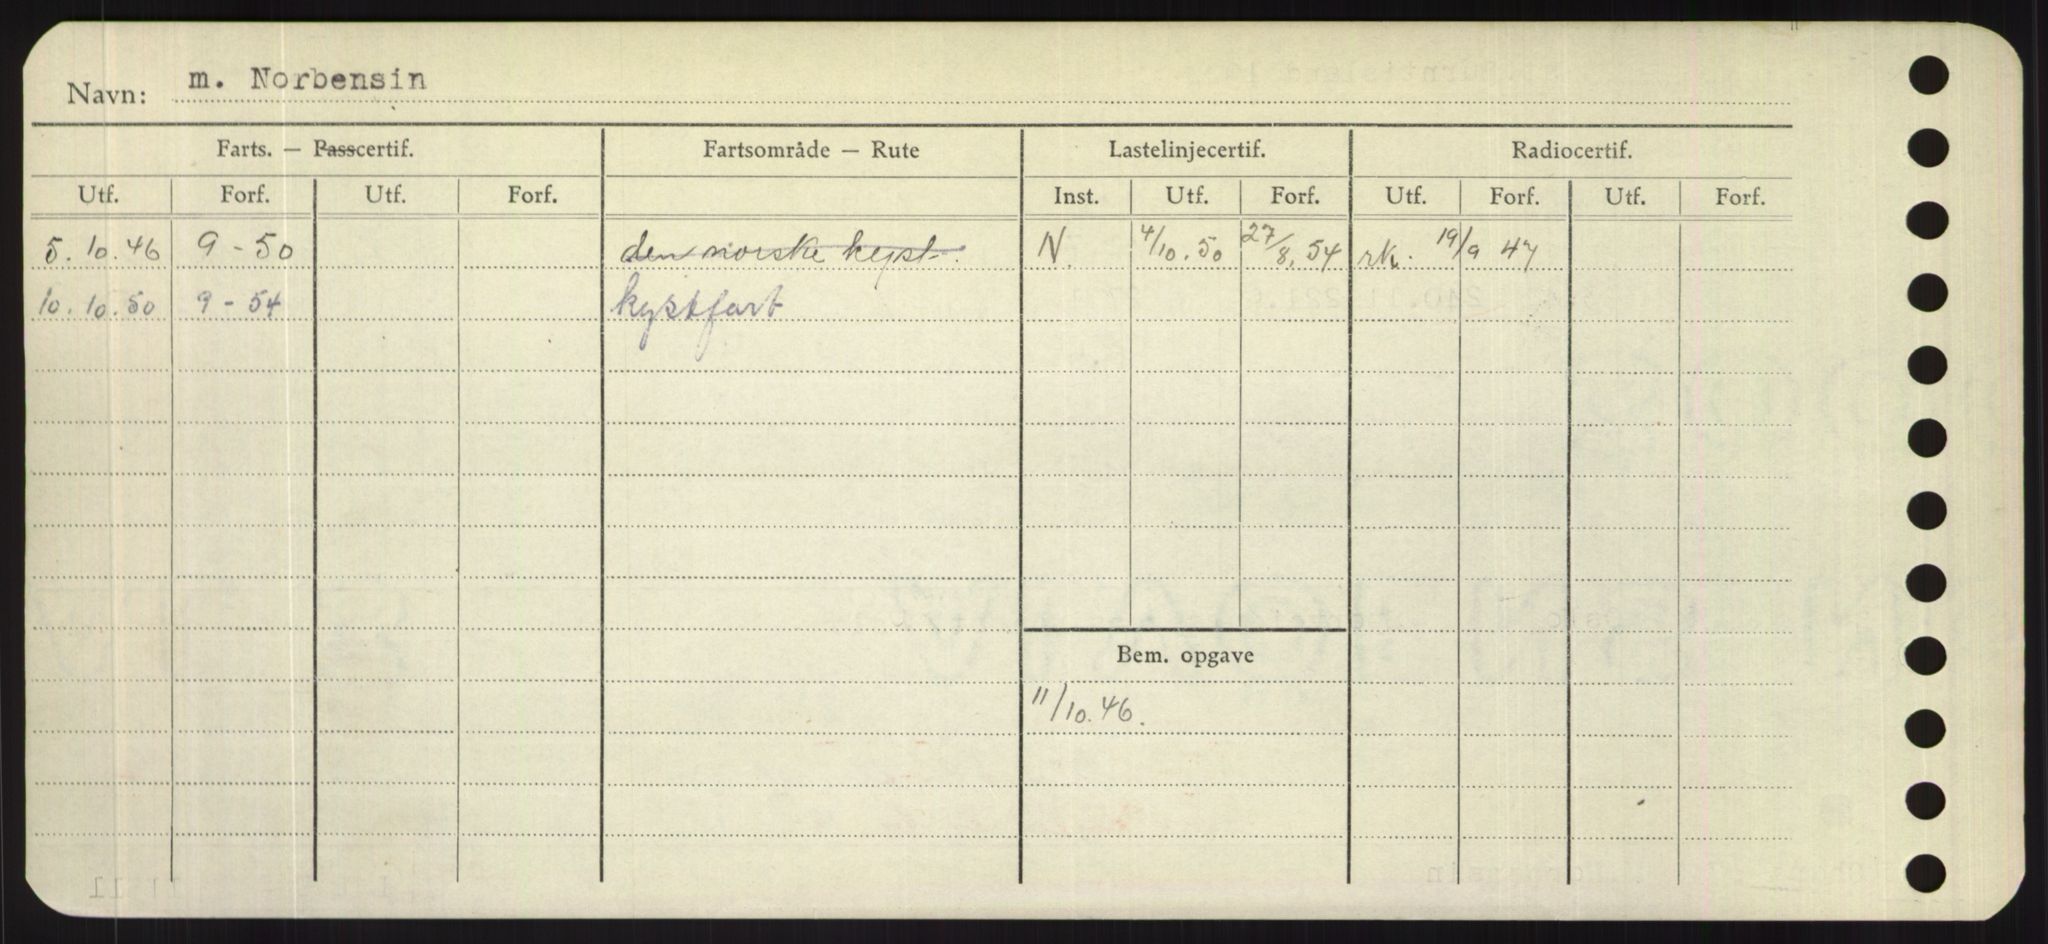 Navn: m. Norbensin
Farts. — Passcertif. Fartsområde — Rute Lastelinjecertif. Radiocertif.
Utf. Forf. Utf. Forf. Inst. Utf. Forf. Utf. Forf. Utf. Forf.
5. 10. 46 9 - 50 den norske kyst. N. 4/10. 50 27/8. 54 rk. 19/9 47
10. 10. 50 9 - 54 kystfart
Bem. opgave
11/10. 46.